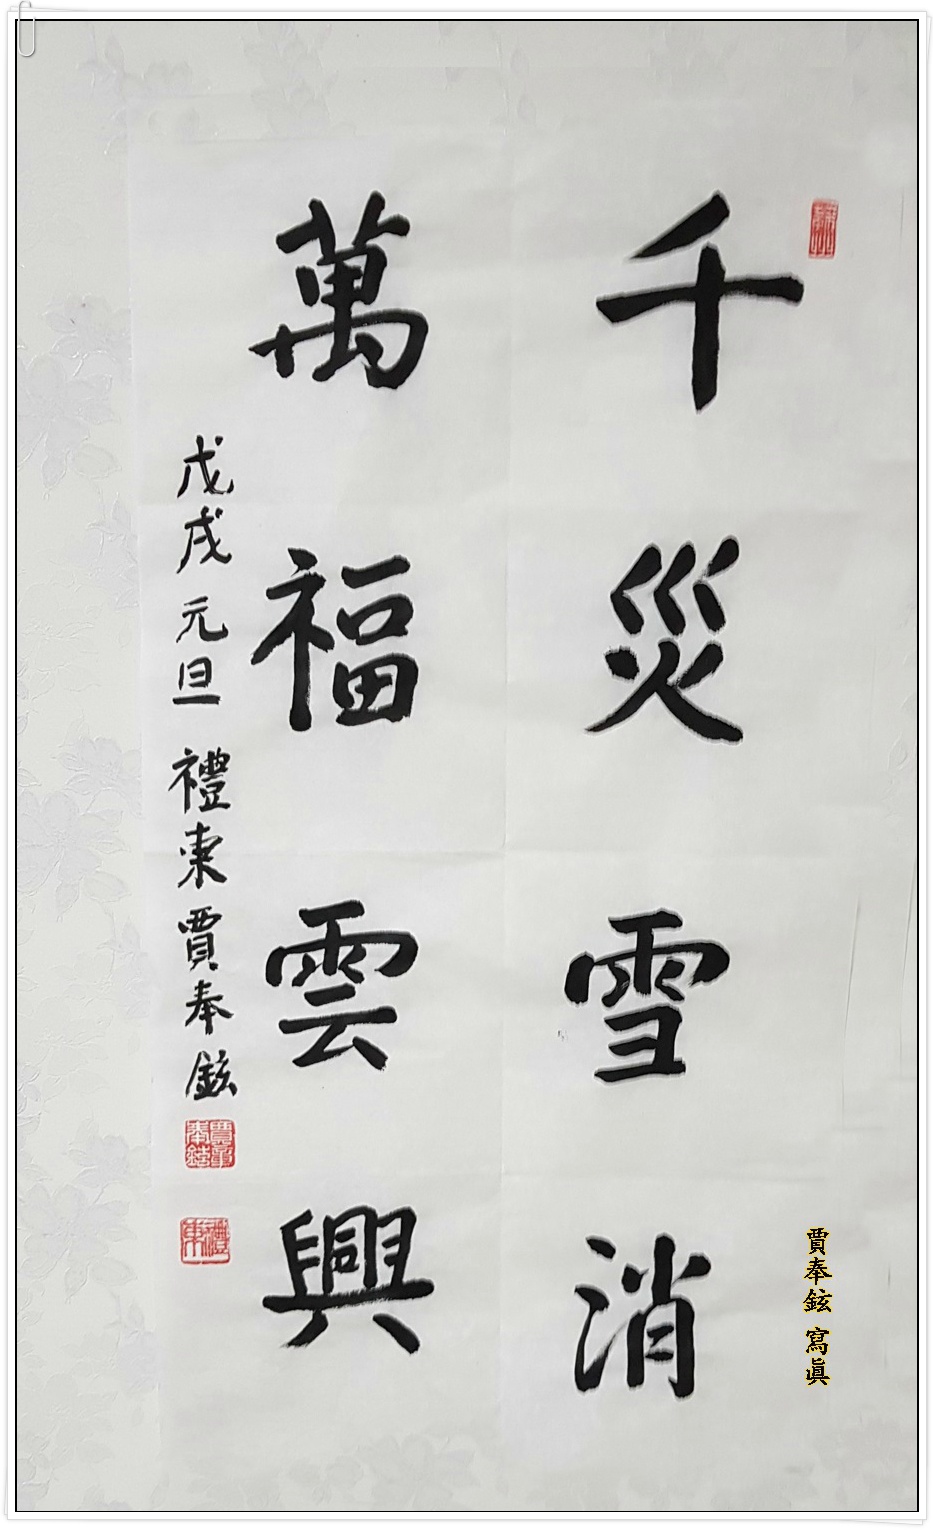 千災雪消
萬福雲興
戊戌 元旦 禮東 賈奉鉉
賈奉鉉 寫眞